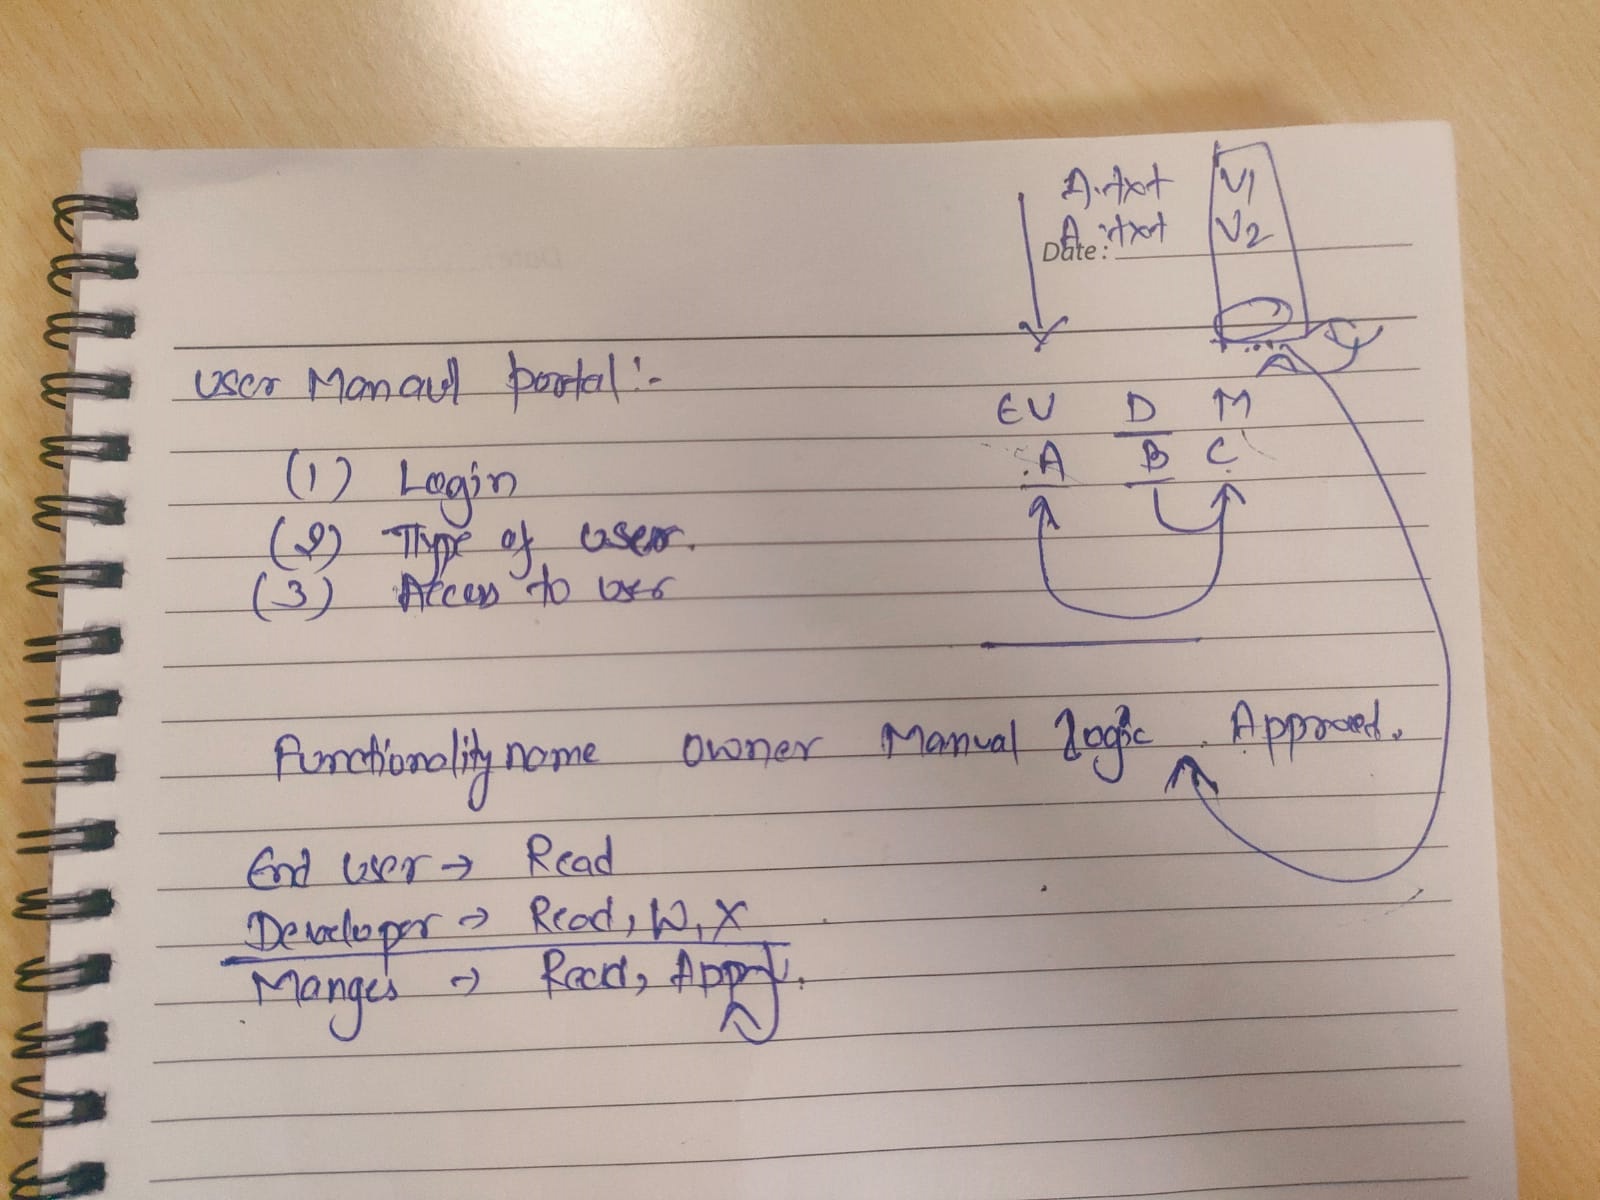 A.txt V1
A.txt V2
Date:
User Manaul portal:-
EU D M
A B C
(1) Login
(2) Type of user.
(3) Access to user
Functionality name owner Manual Logic Approved.
End user → Read
Developer → Read, W, X
Manges → Read,